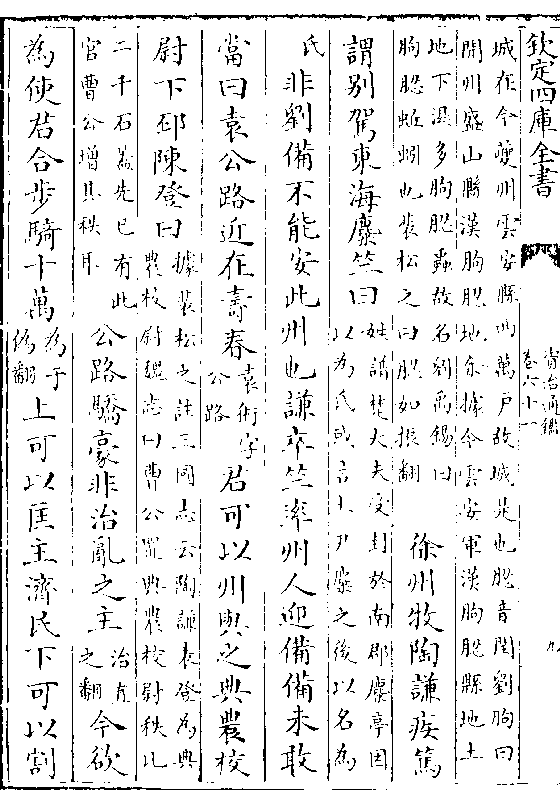 欽定四庫全書
資治通鑑
卷六十一
九
城在今夔州雲安縣西萬户故城是也䏰音閏劉昫曰
開州盛山縣漢朐䏰地余據今雲安軍漢朐䏰縣地土
地下濕多朐䏰蟲故名劉禹錫曰
朐䏰蚯蚓也裴松之曰䏰如振翻
徐州牧陶謙疾篤
謂别駕東海麋竺曰
姓譜楚大夫受封於南郡麋亭因
以為氏或言工尹麋之後以名為
氏
非劉備不能安此州也謙卒竺率州人迎備備未敢
當曰袁公路近在壽春
袁術字
公路
君可以州與之典農校
尉下邳陳登曰
據裴松之註三國志云陶謙表登為典
農校尉魏志曰曹公置典農校尉秩比
二千石葢先已有此
官曹公增其秩耳
公路驕豪非治亂之主
治直
之翻
今欲
為使君合步騎十萬
為于
偽翻
上可以匡主濟民下可以割